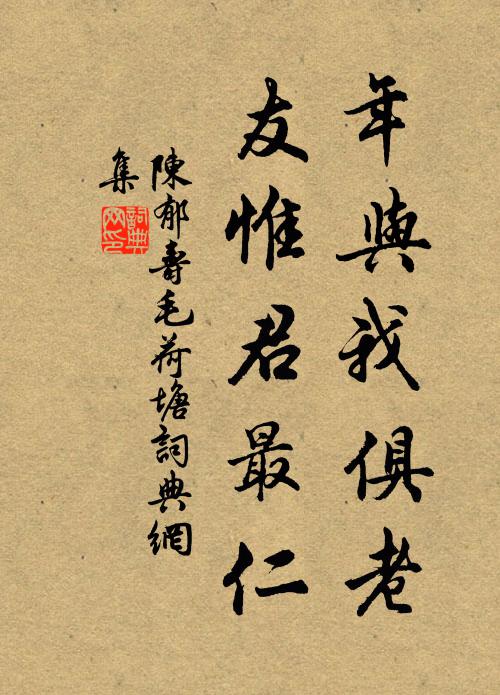 年與我俱老
友惟君最仁
陳郁壽毛荷塘詞典網
集
詞典
网印